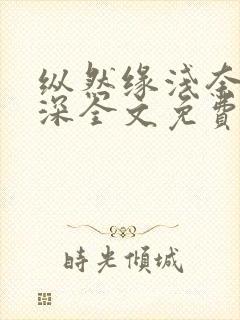 纵然缘浅奈
深全文免費
時光傾城